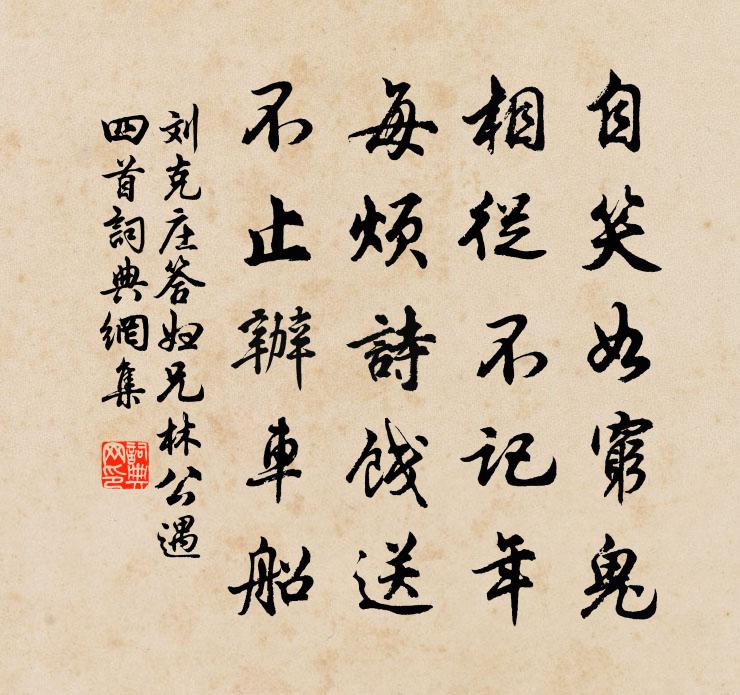 自笑如窮鬼
相從不記年
每煩詩餞送
不止辦車船
刘克庄答妇兄林公遇
四首詞典網集
詞典
网印